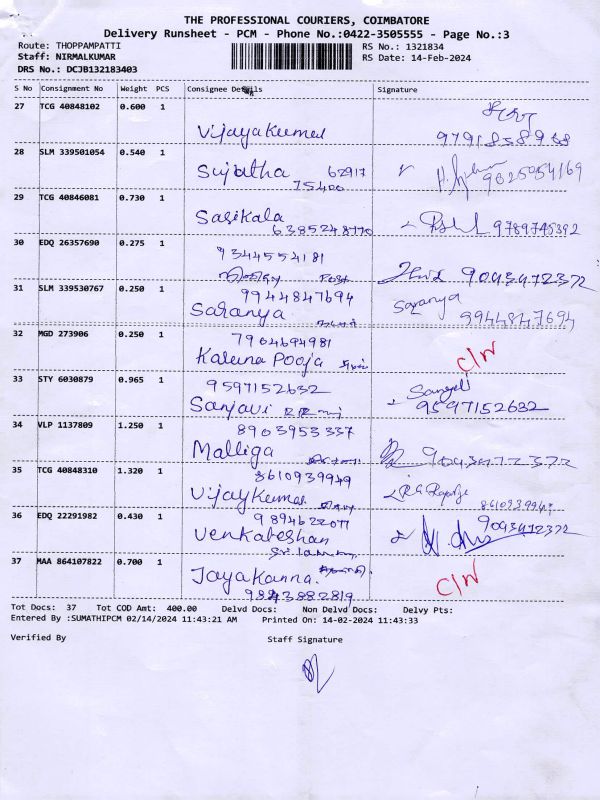 THE PROFESSIONAL COURIERS, COIMBATORE
Delivery Runsheet - PCM - Phone No.:0422-3505555 - Page No.:3
Route: THOPPAMPATTI RS No.: 1321834
Staff: NIRMALKUMAR RS Date: 14-Feb-2024
DRS No.: DCJB132183403
S No Consignment No Weight PCS Consignee Details Signature
27 TCG 40848102 0.600 1
Vijayakumar 9791858968
28 SLM 339501054 0.540 1
Sujatha 62917 9025054169
75400
29 TCG 40846081 0.730 1
Sasikala 9789745392
6385248770
30 EDQ 26357690 0.275 1
9344554181
Post 9043472372
31 SLM 339530767 0.250 1
9944847694 Saranya
Saranya 9944847694
32 MGD 273906 0.250 1
7904694981
Karuna Pooja C/N
33 STY 6030879 0.965 1
9597152632 Sangeli
Sanjavi 9597152632
34 VLP 1137809 1.250 1
8903953337
Malliga 9043472372
35 TCG 40848310 1.320 1
8610939949
Vijaykumar 8610939949
36 EDQ 22291982 0.430 1
9894622077 9043472372
Venkateshan
37 MAA 864107822 0.700 1
Jayakanna. C/N
9843882819
Tot Docs: 37 Tot COD Amt: 400.00 Delvd Docs: Non Delvd Docs: Delvy Pts:
Entered By :SUMATHIPCM 02/14/2024 11:43:21 AM Printed On: 14-02-2024 11:43:33
Verified By Staff Signature